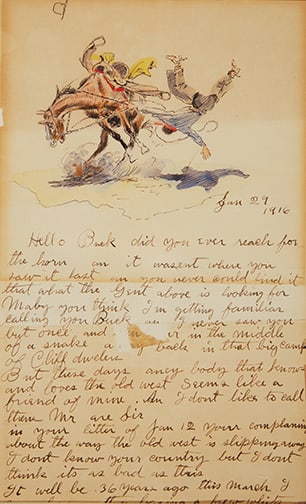 Jan 29
1916
Hello Buck did you ever reach for
the horn an it wasent where you
saw it last an you never could find it
that what the Gent above is looking for
Maby you think I'm getting familiar
calling you Buck never saw you
but once, and in the middle
of a snake back in that big camp
of Cliff dwelers
But these days aney body that knows
and loves the old west Seems like a
friend of mine. An I dont like to call
them Mr are Sir
in your litter of Jan 12 your complaining
about the way the old west is slipping away
I dont know your country but I dont
think its as bad as this
It well be 36 years ago this March I